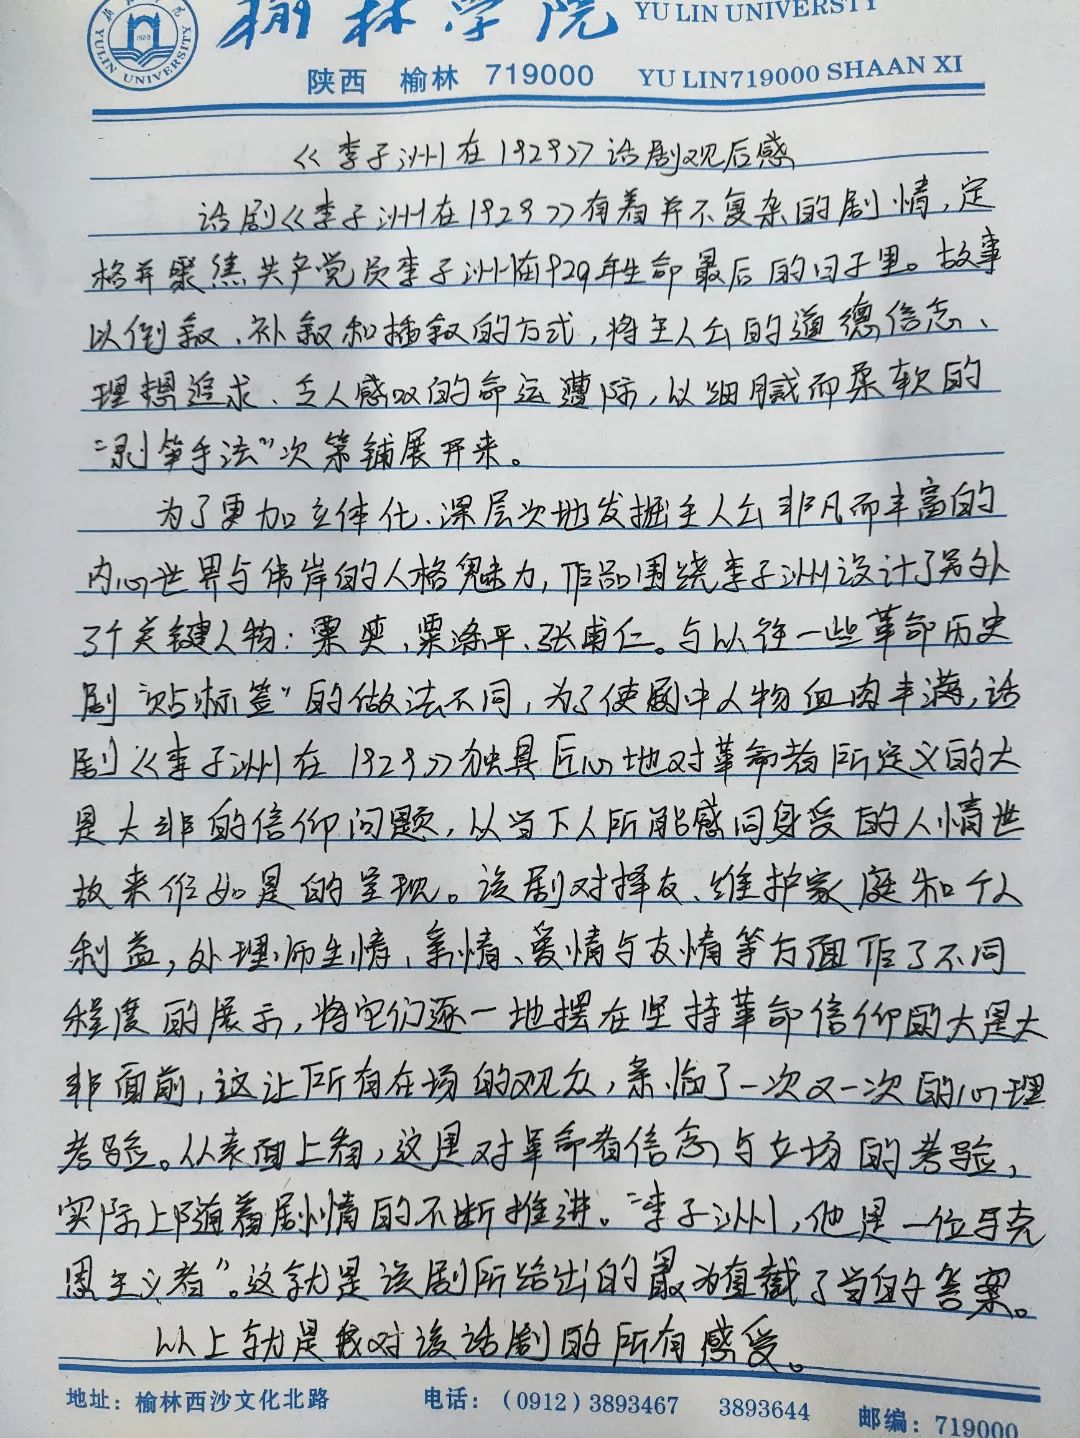 榆林学院 YU LIN UNIVERSITY
YULIN UNIVERSITY
陕西 榆林 719000 YU LIN719000 SHAAN XI
《李子洲在1929》话剧观后感
话剧《李子洲在1929》有着并不复杂的剧情,定
格并聚焦共产党员李子洲在1929年生命最后的日子里。故事
以倒叙、补叙和插叙的方式,将主人公的道德信念、
理想追求、令人感叹的命运遭际,以细腻而柔软的
“剥笋手法”次第铺展开来。
为了更加立体化、深层次地发掘主人公非凡而丰富的
内心世界与伟岸的人格魅力,作品围绕李子洲设计了另外
3个关键人物:粟爽、粟涤平、张甫仁。与以往一些革命历史
剧“贴标签”的做法不同,为了使剧中人物血肉丰满,话
剧《李子洲在1929》独具匠心地对革命者所定义的大
是大非的信仰问题,以当下人所能感同身受的人情世
故来作如是的呈现。该剧对择友、维护家庭和个人
利益,处理师生情、亲情、爱情与友情等方面作了不同
程度的展示,将它们逐一地摆在坚持革命信仰的大是大
非面前,这让所有在场的观众,亲临了一次又一次的心理
考验。从表面上看,这是对革命者信念与立场的考验,
实际上随着剧情的不断推进。“李子洲,他是一位马克
思主义者”。这就是该剧所给出的最为直截了当的答案。
以上就是我对该话剧的所有感受。
地址:榆林西沙文化北路 电话:(0912)3893467 3893644 邮编:719000